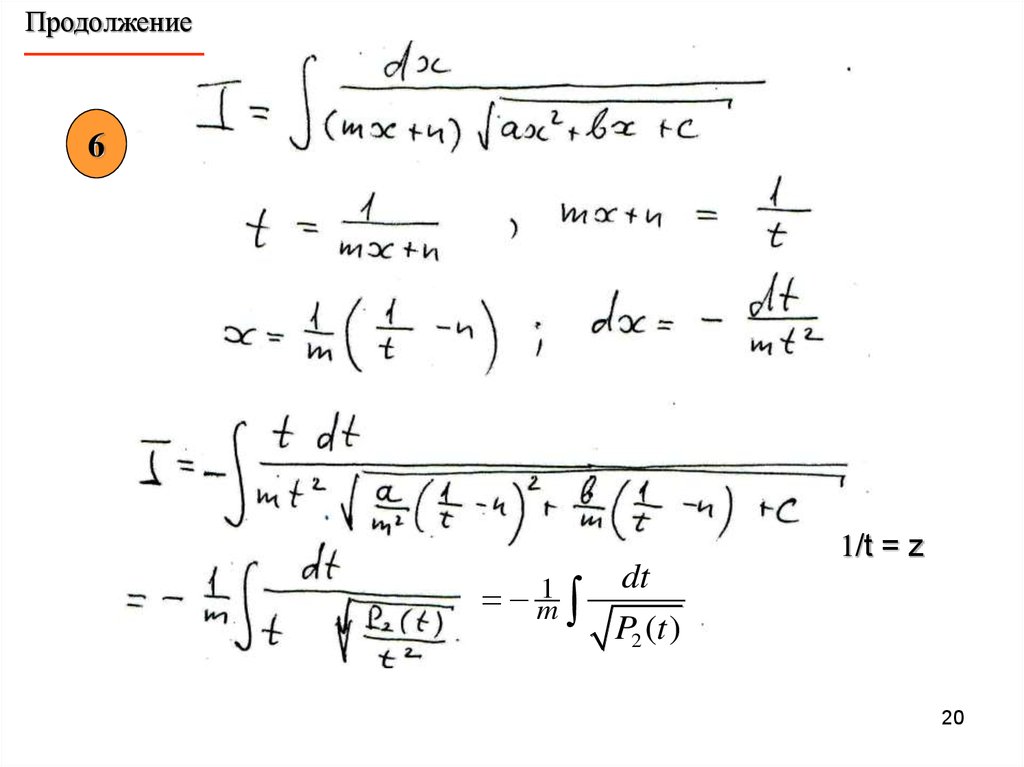 Продолжение
I = ∫ dx / ((mx+n) √(ax²+bx+c))
6
t = 1/(mx+n) , mx+n = 1/t
x = 1/m (1/t -n) ; dx = - dt/(mt²)
I = - ∫ t dt / (mt² √(a/m² (1/t -n)² + b/m (1/t -n) + c))
1/t = z
= - 1/m ∫ dt / (t √(P₂(t)/t²)) = - 1/m ∫ dt / √(P₂(t))
20